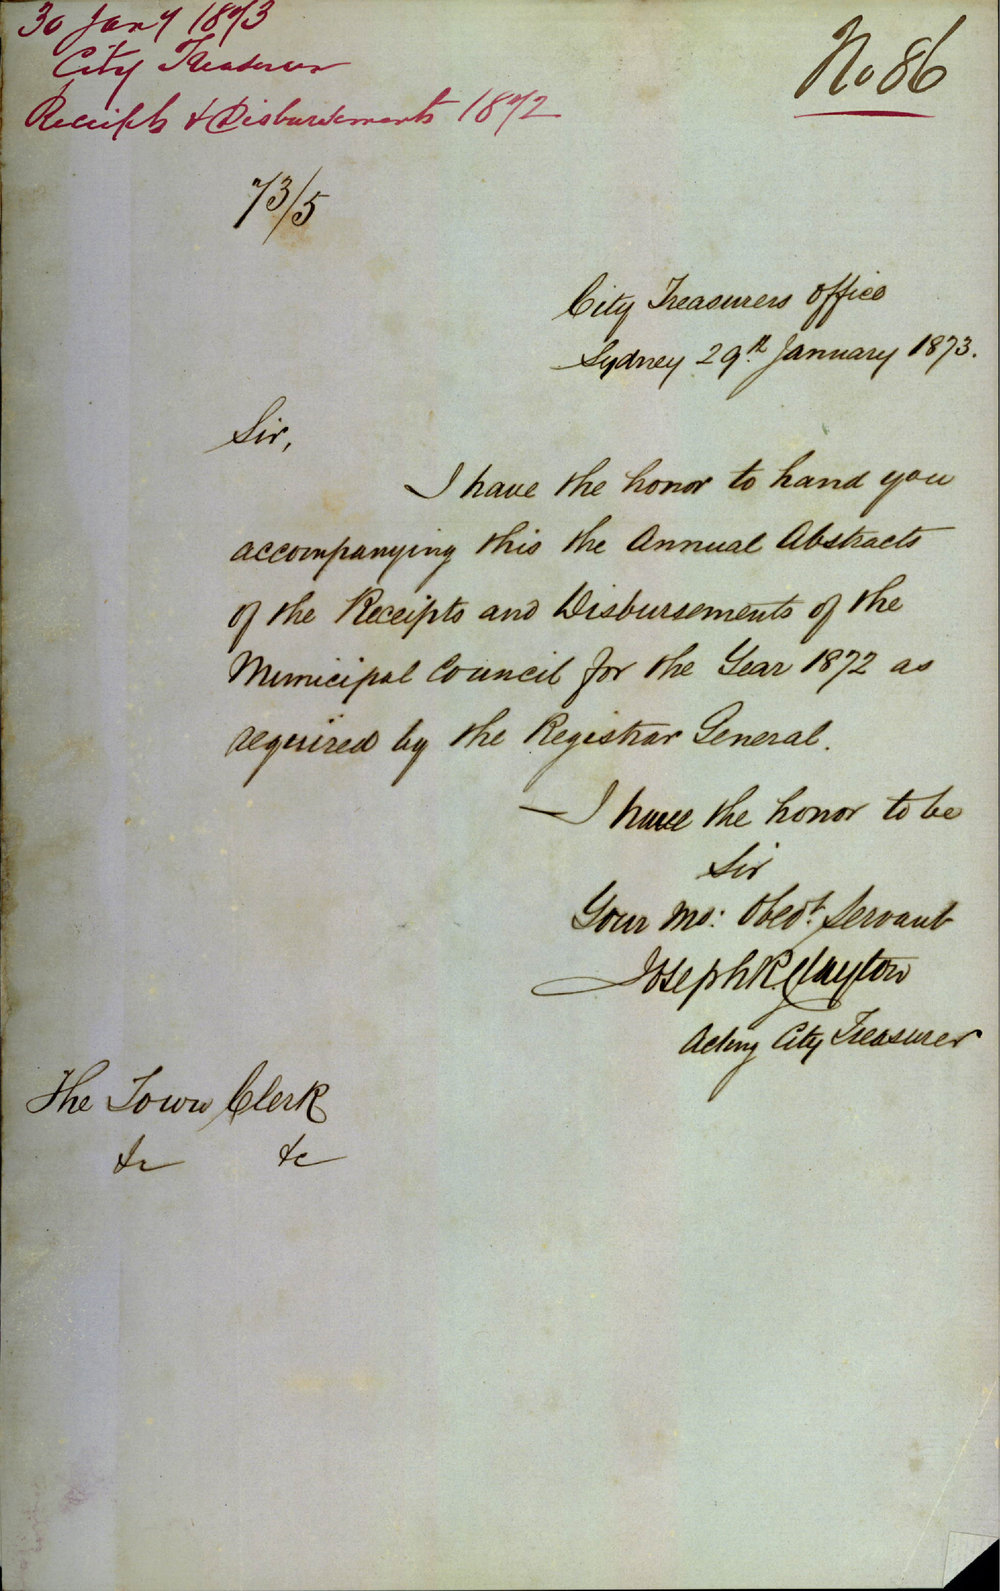 30 Jany 1873
City Treasurer
Receipts & Disbursements 1872
No 86
73/5
City Treasurers Office
Sydney 29th January 1873.
Sir,
I have the honor to hand you
accompanying this the Annual Abstracts
of the Receipts and Disbursements of the
Municipal Council for the Year 1872 as
required by the Registrar General.
I have the honor to be
Sir
Your mo: Obedt. Servant
Joseph R. Clayton
Acting City Treasurer
The Town Clerk
&c &c